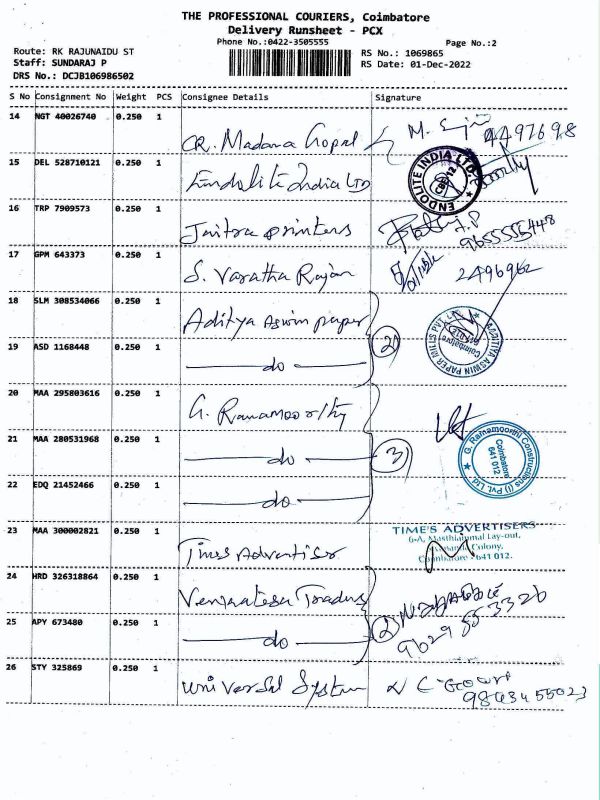 THE PROFESSIONAL COURIERS, Coimbatore
Delivery Runsheet - PCX
Phone No.:0422-3505555
Page No.:2
Route: RK RAJUNAIDU ST
Staff: SUNDARAJ P
DRS No.: DCJB106986502
RS No.: 1069865
RS Date: 01-Dec-2022
S No Consignment No Weight PCS Consignee Details Signature
14 NGT 40026740 0.250 1 CR. Madana Gopal M. 4497698
15 DEL 528710121 0.250 1 Endolite India LTD ENDOLITE INDIA LTD
16 TRP 7909573 0.250 1 Jaitra printers 9655555448
17 GPM 643373 0.250 1 S. Varatha Rajan 2496962
18 SLM 308534066 0.250 1 Aditya Aswin paper ADDITIYA ASWIN PAPER MILLS PVT. Coimbatore
19 ASD 1168448 0.250 1 do 2
20 MAA 295803616 0.250 1 G. Ranamoorthy
21 MAA 280531968 0.250 1 do 3 G. Ranamoorthi Constructions (I) Pvt. Ltd. Coimbatore 641 012
22 EDQ 21452466 0.250 1 do
23 MAA 300002821 0.250 1 Times Advertiser
TIME'S ADVERTISERS
6-A, Masthiammal Lay-out,
Colony,
Coimbatore - 641 012.
24 HRD 326318864 0.250 1 Venkatesa Traders
25 APY 673480 0.250 1 do 2 9629553326
26 STY 325869 0.250 1 Universal System 9843455023